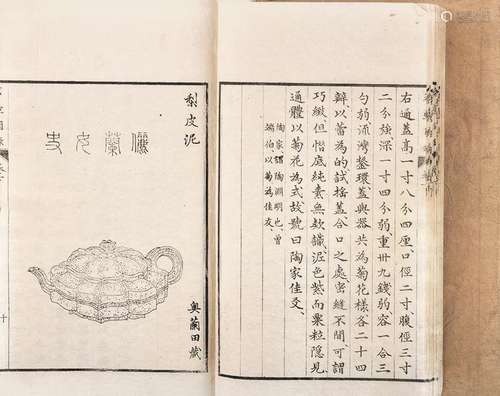 右通蓋高一寸八分四厘口徑二寸腹徑三寸
二分強深一寸四分弱重卅九錢弱容一合三
勺弱流灣鋬環蓋與器共為菊花樣各二十四
瓣以蕾為的試搖蓋合口之處密縫不間可謂
巧緻但惜底純素無欵識泥色紫而粟粒隱見
通體以菊花為式故號曰陶家佳友
陶家謂陶淵明也曾
端伯以菊為佳友
梨皮泥
儷蘭女史
奧蘭田藏
十